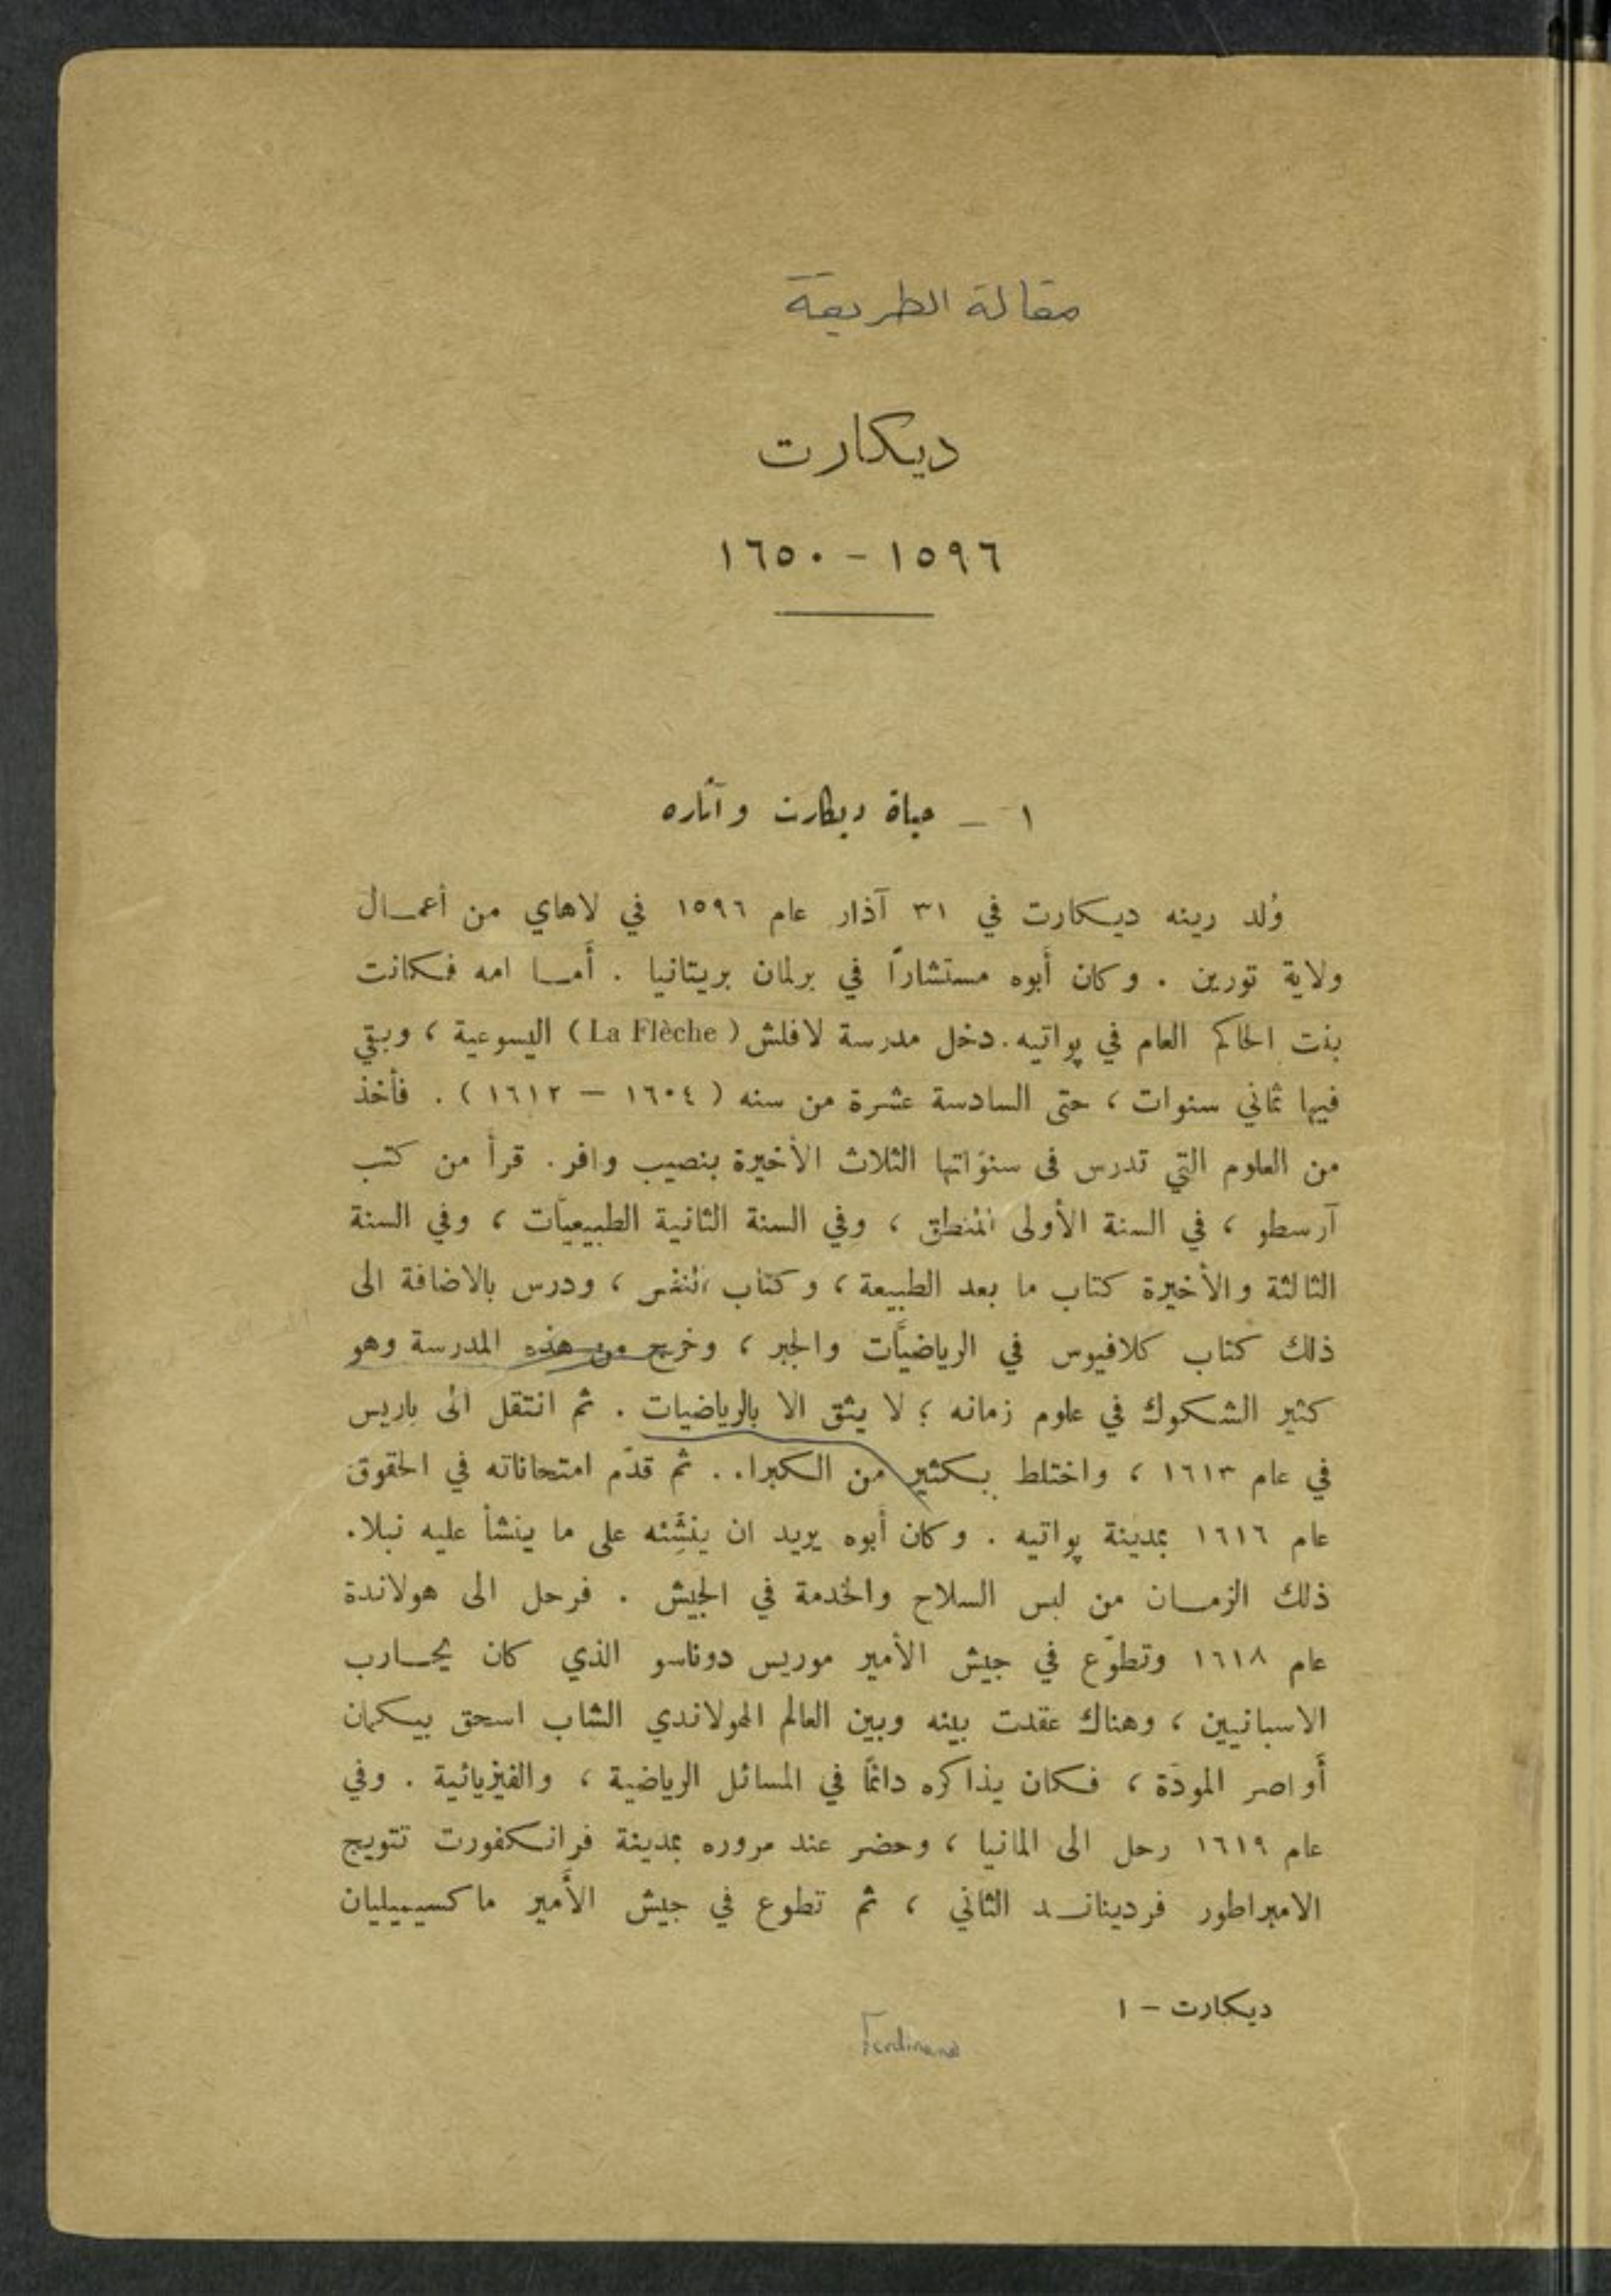 مقالة الطريقة
ديكارت
١٥٩٦ - ١٦٥٠
١ - حياة ديكارت وآثاره
وُلد رينه ديكارت في ٣١ آذار عام ١٥٩٦ في لاهاي من أعمال
ولاية تورين . وكان أبوه مستشاراً في برلمان بريتانيا . أما امه فكانت
بنت الحاكم العام في پواتيه . دخل مدرسة لافلش ( La Flèche ) اليسوعية ، وبقي
فيها ثماني سنوات ، حتى السادسة عشرة من سنه ( ١٦٠٤ – ١٦١٢ ) . فأخذ
من العلوم التي تدرس في سنواتها الثلاث الأخيرة بنصيب وافر . قرأ من كتب
آرسطو ، في السنة الأولى المنطق ، وفي السنة الثانية الطبيعيات ، وفي السنة
الثالثة والأخيرة كتاب ما بعد الطبيعة ، وكتاب النفس ، ودرس بالاضافة الى
ذلك كتاب كلافيوس في الرياضيَّات والجبر ، وخرج من هذه المدرسة وهو
كثير الشكوك في علوم زمانه ؛ لا يثق الا بالرياضيات . ثم انتقل الى باريس
في عام ١٦١٣ ، واختلط بكثير من الكبراء . ثم قدّم امتحاناته في الحقوق
عام ١٦١٦ بمدينة پواتيه . وكان أبوه يريد ان ينشِّئه على ما ينشأ عليه نبلاء
ذلك الزمان من لبس السلاح والخدمة في الجيش . فرحل الى هولاندة
عام ١٦١٨ وتطوّع في جيش الأمير موريس دوناسو الذي كان يحارب
الاسبانيين ، وهناك عقدت بينه وبين العالم الهولاندي الشاب اسحق بيكمان
أواصر المودّة ، فكان يذاكره دائماً في المسائل الرياضية ، والفيزيائية . وفي
عام ١٦١٩ رحل الى المانيا ، وحضر عند مروره بمدينة فرانكفورت تتويج
الامبراطور فرديناند الثاني ، ثم تطوع في جيش الأمير ماكسيميليان
ديكارت – ١
Ferdinand